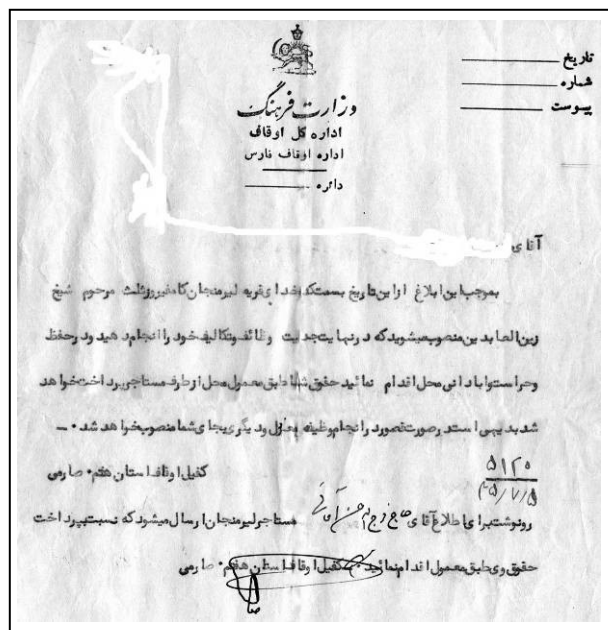 تاریخ
شماره
پیوست
وزارت فرهنگ
اداره کل اوقاف
اداره اوقاف فارس
دائره
آقای
بموجب این ابلاغ از این تاریخ بسمت کدخدای قریه لیرمنجان کامفیروز ثلث مرحوم شیخ
زین العابدین منصوب میشوید که در نهایت جدیت وظائف و تکالیف خود را انجام دهید و در حفظ
و حراست و ابادانی محل اقدام نمائید حقوق شما طبق معمول محل از طرف مستاجر پرداخت خواهد
شد بدیهی است در صورت قصور در انجام وظیفه معزول و دیگری بجای شما منصوب خواهد شد ۰ ـ
کفیل اوقاف استان هفتم ۰ صارمی
۵۱۲۰
۴۵/۷/۵
رونوشت برای اطلاع آقای حاج مستاجر لیرمنجان ارسال میشود که نسبت بپرداخت
حقوق وی طبق معمول اقدام نمائید ۰ کفیل اوقاف استان هفتم ۰ صارمی